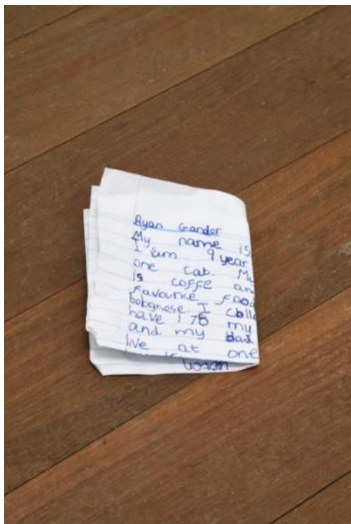 Ryan Gander
My name is
I am 9 year
one cat. M
is coffe an
Favourite Foo
bolognese I
have 1 my
and my dad
live at one